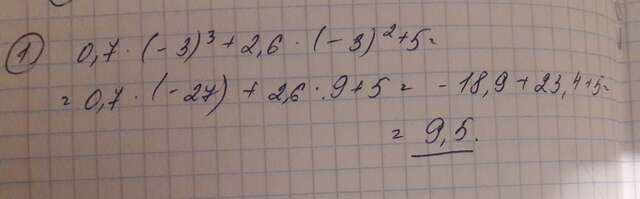 1) 0,7 · (-3)³ + 2,6 · (-3)² + 5 =
= 0,7 · (-27) + 2,6 · 9 + 5 = -18,9 + 23,4 + 5 =
= 9,5.